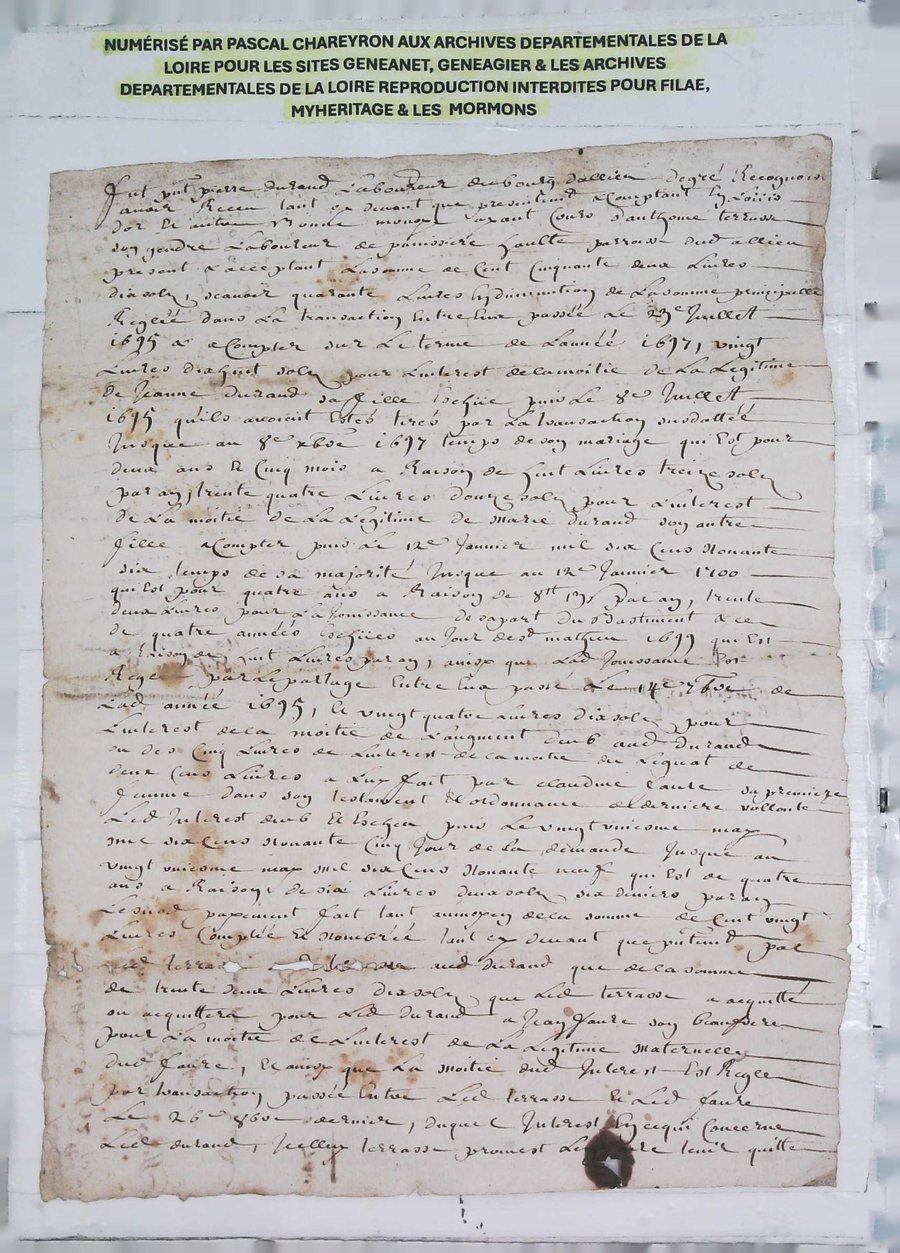 NUMÉRISÉ PAR PASCAL CHAREYRON AUX ARCHIVES DEPARTEMENTALES DE LA
LOIRE POUR LES SITES GENEANET, GENEAGIER & LES ARCHIVES
DEPARTEMENTALES DE LA LOIRE REPRODUCTION INTERDITES POUR FILAE,
MYHERITAGE & LES MORMONS
fut pnt pierre durand Laboureur du bourg dallieu degré Recognois
avoir Receu tant cy devant que presentement Comptant En Louis
dor Et autre Bonne monoye ayant Cours danthoine terrasse
son gendre Laboureur de panissiere haulte parroisse dud allieu
present & acceptant Lasomme de Cent Cinquante deux Livres
dix solz, scavoir quarante Livres En diminution de La somme principalle
Reglée dans La transaction Entre Eux passée Le 23e Juillet
1695 & a Compter sur Le terme de Lannée 1697, vingt
Livres dixhuit solz pour Linterest de la moitié de La Legitime
de Jeanne durand sa fille Escheüe puis Le 8e Juillet
1695 quils avoient Estés tirés par La transaction susdattée
Jusque au 8e xbre 1697 temps de son mariage qui Est pour
deux ans Et Cinq mois a Raison de huit Livres treize solz
par an, trente quatre Livres douze solz pour Linterest
de La moitié de La Legitime de marie durand son autre
fille a Compter puis Le 12e Janvier mil six Cens Nonante
six temps de sa majorité Jusque au 12e Janvier 1700
qui Est pour quatre ans a Raison de 8tt 13s par an, trente
deux Livres pour La Jouissance de sa part du Bastiment & ce
de quatre années Escheües au Jour de st mathieu 1699 qui Est
a Raison de huit Livres par an, ainsy que Lad Jouissance Est
Reglé par Le partage Entre Eux passé Le 14e 7bre de
Lad année 1695, Et vingt quatre Livres dix solz pour
Linterest de la moitié de Laugment deub aud durand
ou des Cinq Livres de Linterest de la moitié du Legat de
deux Cens Livres a Luy fait par claudine faure sa premiere
femme dans son testament Et ordonnance de derniere vollonte
Led Interest deub Et Escheu puis Le vingt uniesme may
mil six Cens Nonante Cinq Jour de la demande Jusque au
vingt uniesme may mil six Cens Nonante neuf qui Est de quatre
ans a Raison de six Livres deux solz six deniers par an
Le susd payement fait tant au moyen de la somme de Cent vingt
Livres Comptée Et Nombrée tant cy devant que pntement par
Led terrasse aud durand que de la somme
de trente deux Livres dix solz que Led terrasse a acquitté
ou acquittera pour Led durand a Jean faure son Beaufrere
pour La moitié de Linterest de La Legitime maternelle
dud faure, Et ainsy que La moitié dud Interest Est Reglée
par transaction passée Entre Led terrasse Et Led faure
Le 26e 8bre dernier, duquel Interest En ce qui Concerne
Led durand, Icelluy terrasse promest Le tenir quitte